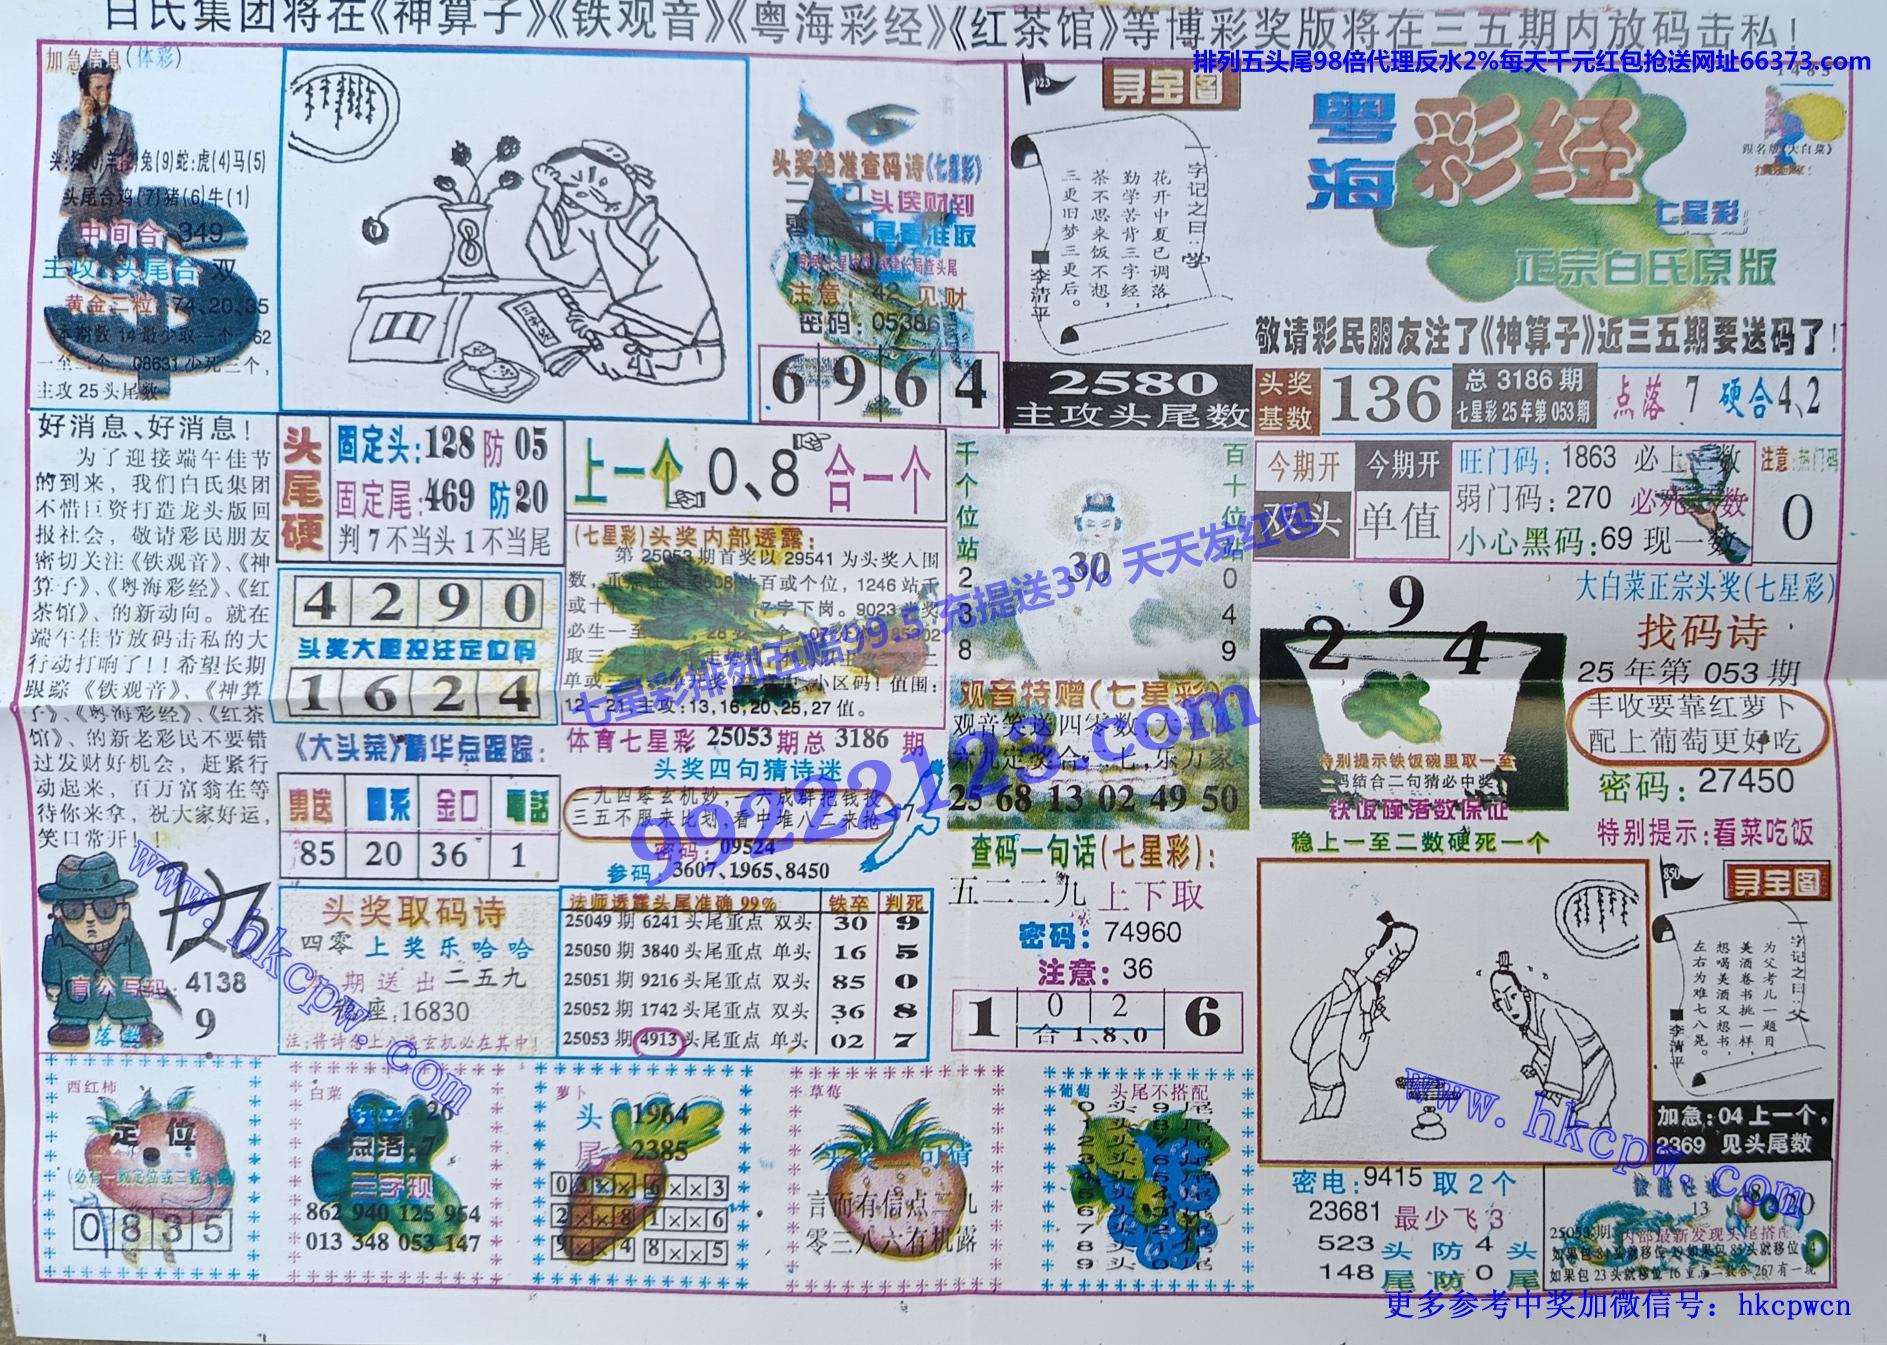 白氏集团将在《神算子》《铁观音》《粤海彩经》《红茶馆》等博彩奖版将在三五期内放码击私！
排列五头尾98倍代理反水2%每天千元红包抢送网址66373.com
加急信息(体彩)
兔(9)蛇:虎(4)马(5)
头尾合鸡(7)猪(6)牛(1)
中间合 349
主攻:头尾合 双
黄金二粒:74、20、35
主攻 25 头尾数
头奖绝准查码诗(七星彩)
头送财到
注意: 42 见财
密码:05386
6 9 6 4
023
寻宝图
一字记之曰:学
花开中夏已调落，
勤学苦背三字经，
茶不思来饭不想，
三更旧梦三更后。
■李清平
2580
主攻头尾数
粤海彩经
七星彩
正宗白氏原版
跟名版《大白菜》
敬请彩民朋友注了《神算子》近三五期要送码了！
头奖基数 136
总 3186 期
七星彩25年第053期
点落 7 硬合4、2
好消息、好消息！
为了迎接端午佳节
的到来，我们白氏集团
不惜巨资打造龙头版回
报社会，敬请彩民朋友
密切关注《铁观音》、《神
算子》、《粤海彩经》、《红
茶馆》、的新动向。就在
端午佳节放码击私的大
行动打响了！！希望长期
跟踪《铁观音》、《神算
子》、《粤海彩经》、《红茶
馆》、的新老彩民不要错
过发财好机会，赶紧行
动起来，百万富翁在等
待你来拿，祝大家好运，
笑口常开！！
头尾硬
固定头:128 防 05
固定尾:469 防20
判 7 不当头 1 不当尾
上一个 0、8 合一个
4 2 9 0
头奖大胆投注定位码
1 6 2 4
(七星彩)头奖内部透露:
第 25053 期首奖以 29541 为头奖入围
12-21,主攻:13,16,20,25,27 值。
千个位站2368
百十位站049
30
观音特赠(七星彩)
观音笑送四零数,大丰收
六九定奖合二七,乐万家
25 68 13 02 49 50
今期开 双头
今期开 单值
旺门码: 1863 必上 数
弱门码: 270 必死 数
小心黑码:69 现一数
注意:热门码
0
9
2 4
特别提示铁饭碗里取一至
二码结合二句猜必中奖
铁饭碗落数保证
稳上一至二数硬死一个
大白菜正宗头奖(七星彩)
找码诗
25 年第 053 期
丰收要靠红萝卜
配上葡萄更好吃
密码:27450
特别提示:看菜吃饭
《大头菜》精华点跟踪:
勇送 关系 金口 电话
85 20 36 1
体育七星彩 25053期总 3186 期
头奖四句猜诗迷
二九四零玄机妙,一六成群把钱投
三五不服来比划,看中堆八二来抢
密码: 09524
参码: 3607、1965、8450
查码一句话(七星彩):
五二二九 上下取
密码: 74960
注意: 36
1 0 2 6
合 1、8、0
盲公写码: 4138
落数 9
头奖取码诗
四零上奖乐哈哈
期送出二五九
座:16830
注:将诗句上八选玄机必在其中!
法师透露头尾准确 99% 铁卒 判死
25049 期 6241 头尾重点 双头 30 9
25050 期 3840 头尾重点 单头 16 5
25051 期 9216 头尾重点 双头 85 0
25052 期 1742 头尾重点 双头 36 8
25053 期 4913 头尾重点 单头 02 7
850
寻宝图
一字记之曰:父
为父考儿一题目，
美酒卷书挑一样，
想喝美酒又想书，
左右为难七八晃。
■李清平
加急:04上一个,
2369 见头尾数
西红柿
定位
0 8 3 5
白菜
26
点落:7
三字现
862 940 125 954
013 348 053 147
萝卜
头 1964
尾 2385
0 3 × × 6 × × 3
2 × × 8 1 × × 6
9 × × 4 8 × × 5
草莓
头奖二句猜
言而有信点二九
零三八六有机露
葡萄 头尾不搭配
0 头 9 尾
密电:9415 取2个
23681 最少飞 3
523 头 防 4 头
148 尾 防 0 尾
13
25053期:内部最新发现头尾搭配
七星彩排列五赔99.5 充提送3% 天天发红包
99222123.com
www.hkcpw.com
www.hkcpw.com
更多参考中奖加微信号：hkcpwcn